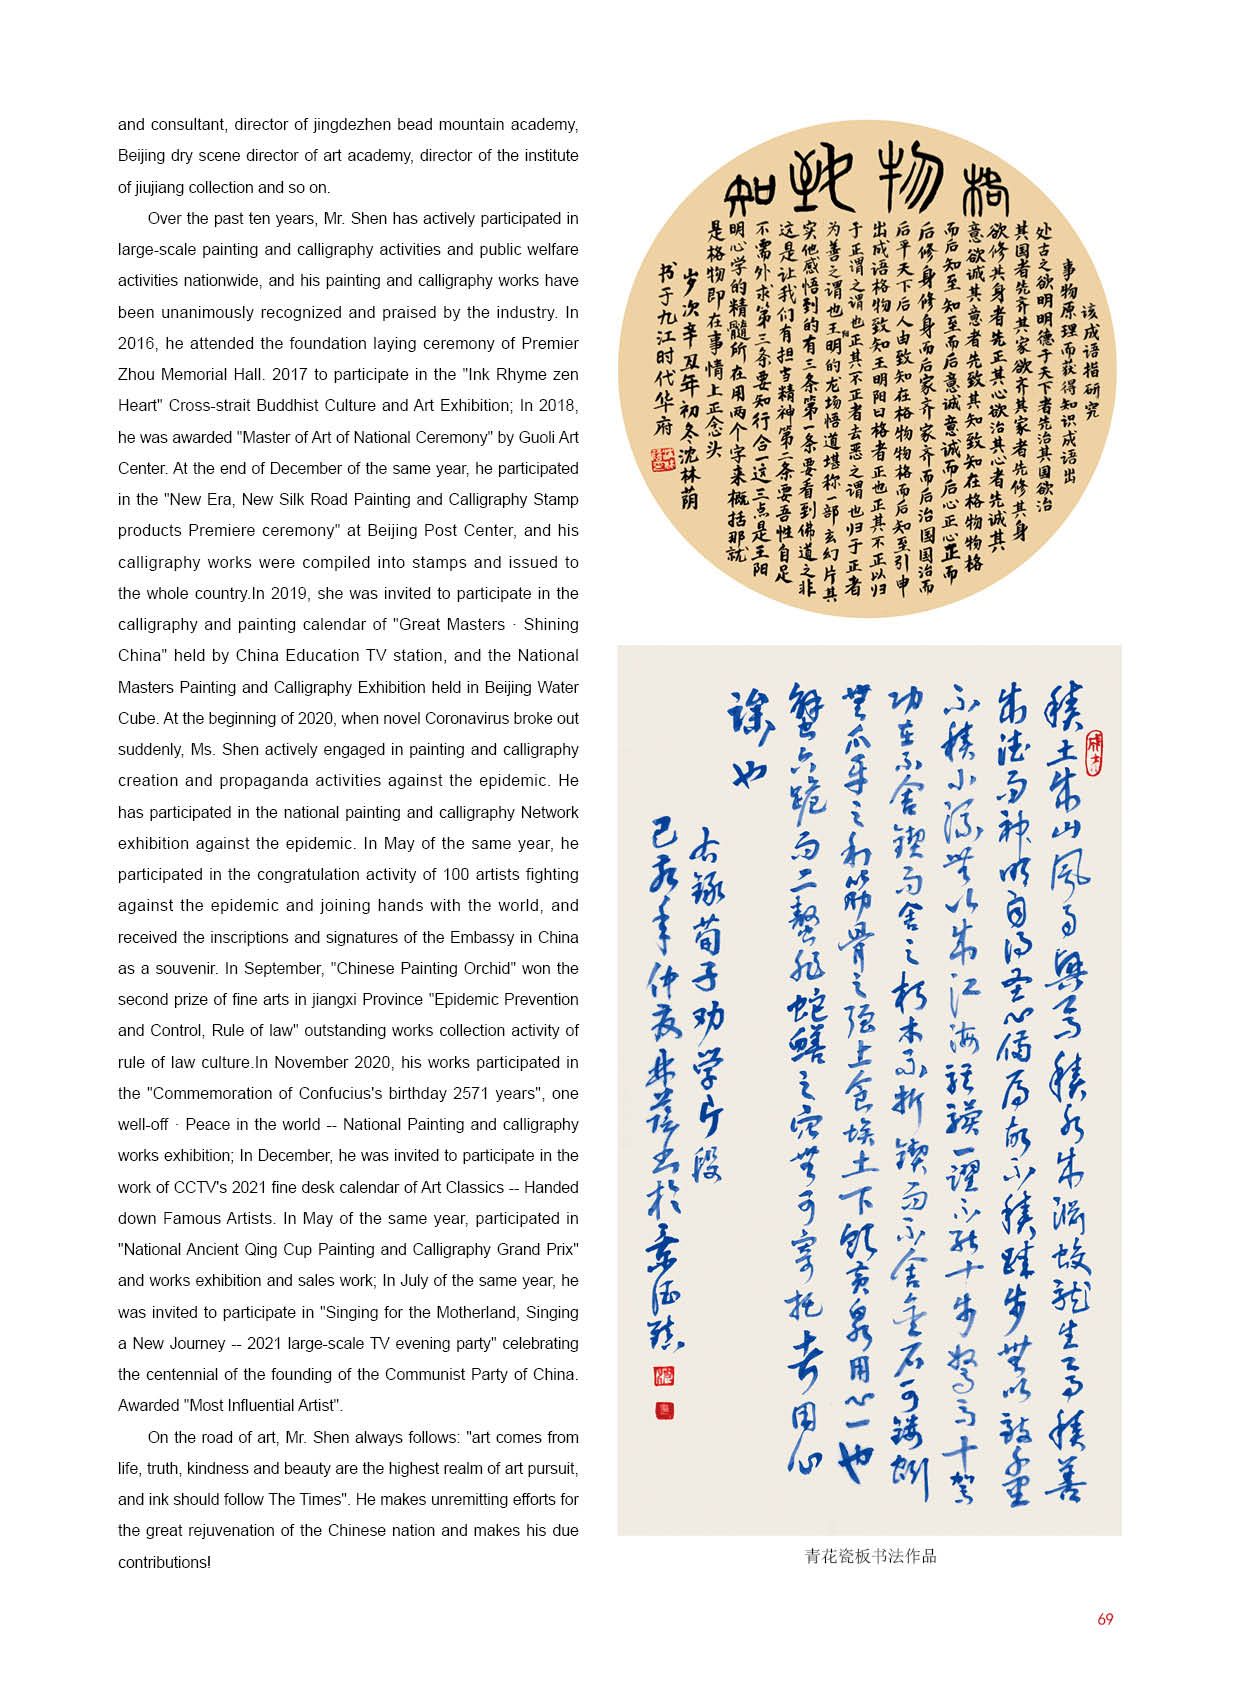 and consultant, director of jingdezhen bead mountain academy,
Beijing dry scene director of art academy, director of the institute
of jiujiang collection and so on.
Over the past ten years, Mr. Shen has actively participated in
large-scale painting and calligraphy activities and public welfare
activities nationwide, and his painting and calligraphy works have
been unanimously recognized and praised by the industry. In
2016, he attended the foundation laying ceremony of Premier
Zhou Memorial Hall. 2017 to participate in the "Ink Rhyme zen
Heart" Cross-strait Buddhist Culture and Art Exhibition; In 2018,
he was awarded "Master of Art of National Ceremony" by Guoli Art
Center. At the end of December of the same year, he participated
in the "New Era, New Silk Road Painting and Calligraphy Stamp
products Premiere ceremony" at Beijing Post Center, and his
calligraphy works were compiled into stamps and issued to
the whole country.In 2019, she was invited to participate in the
calligraphy and painting calendar of "Great Masters · Shining
China" held by China Education TV station, and the National
Masters Painting and Calligraphy Exhibition held in Beijing Water
Cube. At the beginning of 2020, when novel Coronavirus broke out
suddenly, Ms. Shen actively engaged in painting and calligraphy
creation and propaganda activities against the epidemic. He
has participated in the national painting and calligraphy Network
exhibition against the epidemic. In May of the same year, he
participated in the congratulation activity of 100 artists fighting
against the epidemic and joining hands with the world, and
received the inscriptions and signatures of the Embassy in China
as a souvenir. In September, "Chinese Painting Orchid" won the
second prize of fine arts in jiangxi Province "Epidemic Prevention
and Control, Rule of law" outstanding works collection activity of
rule of law culture.In November 2020, his works participated in
the "Commemoration of Confucius's birthday 2571 years", one
well-off · Peace in the world -- National Painting and calligraphy
works exhibition; In December, he was invited to participate in the
work of CCTV's 2021 fine desk calendar of Art Classics -- Handed
down Famous Artists. In May of the same year, participated in
"National Ancient Qing Cup Painting and Calligraphy Grand Prix"
and works exhibition and sales work; In July of the same year, he
was invited to participate in "Singing for the Motherland, Singing
a New Journey -- 2021 large-scale TV evening party" celebrating
the centennial of the founding of the Communist Party of China.
Awarded "Most Influential Artist".
On the road of art, Mr. Shen always follows: "art comes from
life, truth, kindness and beauty are the highest realm of art pursuit,
and ink should follow The Times". He makes unremitting efforts for
the great rejuvenation of the Chinese nation and makes his due
contributions!
格物致知
该成语指研究
事物原理而获得知识成语出
处古之欲明明德于天下者先治其国欲治
其国者先齐其家欲齐其家者先修其身
欲修其身者先正其心欲治其心者先诚其
意欲诚其意者先致其知致知在格物物格
而后知至知至而后意诚意诚而后心正心正而
后修身修身而后家齐家齐而后治国国治而
后平天下后人由致知在格物物格而后知至引申
出成语格物致知王阳明曰格者正也正其不正以归
于正谓之谓也正其不正者去恶之谓也归于正者
为善之谓也王阳明的龙场悟道堪称一部玄幻片其
实他感悟到的有三条第一条要看到佛道之非
这是让我们有担当精神第二条要吾性自足
不需外求第三条要知行合一这三点是王阳
明心学的精髓所在用两个字来概括那就
是格物即在事情上正念头
岁次辛丑年初冬沈林荫
书于九江时代华府
积土成山风雨兴焉积水成渊蛟龙生焉积善
成德而神明自得圣心备焉故不积跬步无以致千里
不积小流无以成江海骐骥一跃不能十步驽马十驾
功在不舍锲而舍之朽木不折锲而不舍金石可镂蚓
无爪牙之利筋骨之强上食埃土下饮黄泉用心一也
蟹六跪而二螯非蛇鳝之穴无可寄托者用心
躁也
右录荀子劝学片段
己亥年仲夏林荫书于景德镇
青花瓷板书法作品
69